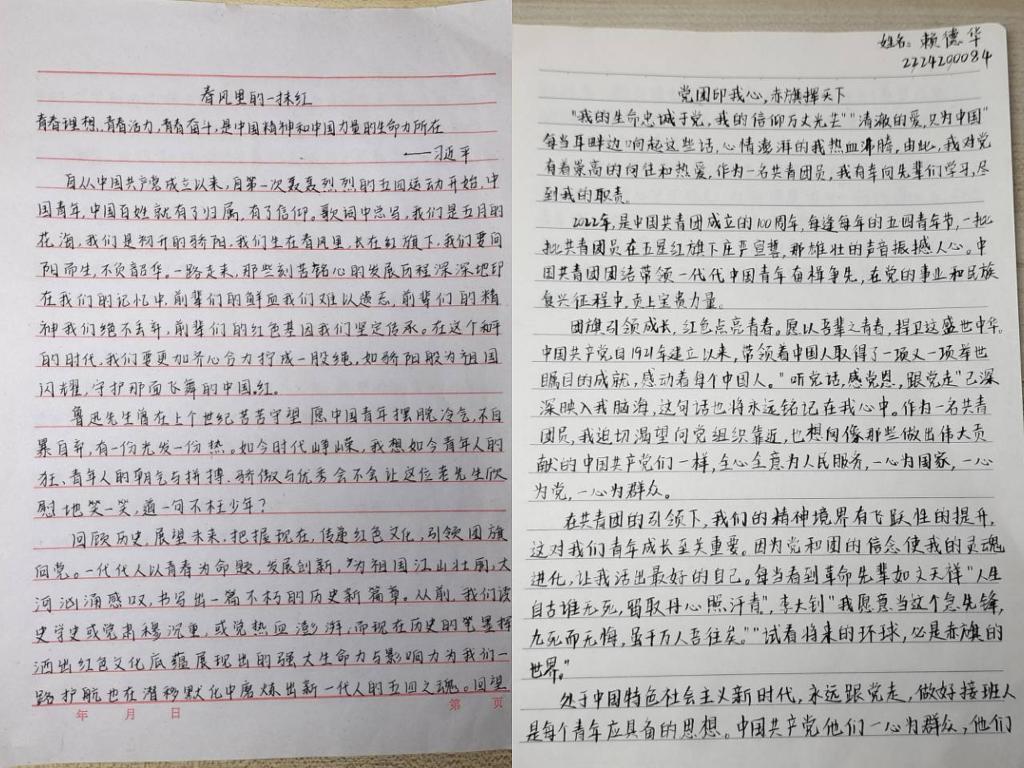 春风里的一抹红
青春理想,青春活力,青春奋斗,是中国精神和中国力量的生命力所在
——习近平
自从中国共产党成立以来,自第一次轰轰烈烈的五四运动开始,中
国青年,中国百姓就有了归属,有了信仰。歌词中总写,我们是五月的
花海,我们是初升的骄阳,我们生在春风里,长在红旗下,我们要向
阳而生,不负韶华,一路走来,那些刻苦铭心的发展历程深深地印
在我们的记忆中,前辈们的鲜血我们难以遗忘,前辈们的精
神我们绝不丢弃,前辈们的红色基因我们坚定传承。在这个和平
的时代,我们要更加齐心合力拧成一股绳,如骄阳般为祖国
闪耀,守护那面飞舞的中国红。
鲁迅先生曾在上个世纪苦苦守望 愿中国青年摆脱冷气,不自
暴自弃,有一份光发一份热。如今时代峥嵘,我想如今青年人的
狂、青年人的朝气与拼搏、骄傲与优秀会不会让这位老先生欣
慰地笑一笑,道一句不枉少年?
回顾历史,展望未来,把握现在,传递红色文化,引领团旗
向党。一代代人以青春为命题,发展创新,为祖国江山壮丽,大
河汹涌感叹,书写出一篇不朽的历史新篇章。从前,我们读
史学史或觉肃穆沉重,或觉热血澎湃,而现在历史的笔墨挥
洒出红色文化底蕴展现出的强大生命力与影响力为我们一
路护航也在潜移默化中磨炼出新一代人的五四之魂。回望
年 月 日 第 页
姓名:赖德华
2224290084
党团印我心,赤旗挥天下
"我的生命忠诚于党,我的信仰万丈光芒""清澈的爱,只为中国"
每当耳畔边响起这些话,心情澎湃的我热血沸腾,由此,我对党
有着崇高的向往和热爱,作为一名共青团员,我有幸向先辈们学习,尽
到我的职责。
2022年,是中国共青团成立的100周年,每逢每年的五四青年节,一批
批共青团员在五星红旗下庄严宣誓,那雄壮的声音振撼人心。中
国共青团团结带领一代代中国青年奋楫争先,在党的事业和民族
复兴征程中,贡上宝贵力量。
团旗引领成长,红色点亮青春。愿以吾辈之青春,捍卫这盛世中华。
中国共产党自1921年建立以来,带领着中国人取得了一项又一项举世
瞩目的成就,感动着每个中国人。"听党话,感党恩,跟党走"已深
深映入我脑海,这句话也将永远铭记在我心中。作为一名共青
团员,我迫切渴望向党组织靠近,也想向像那些做出伟大贡
献的中国共产党们一样,全心全意为人民服务,一心为国家,一心
为党,一心为群众。
在共青团的引领下,我们的精神境界有飞跃性的提升,
这对我们青年成长至关重要。因为党和团的信念使我的灵魂
进化,让我活出最好的自己。每当看到革命先辈如文天祥"人生
自古谁无死,留取丹心照汗青",李大钊"我愿意当这个急先锋,
九死而无悔,虽千万人吾往矣。""试看将来的环球,必是赤旗的
世界。"
处于中国特色社会主义新时代,永远跟党走,做好接班人
是每个青年应具备的思想。中国共产党他们一心为群众,他们